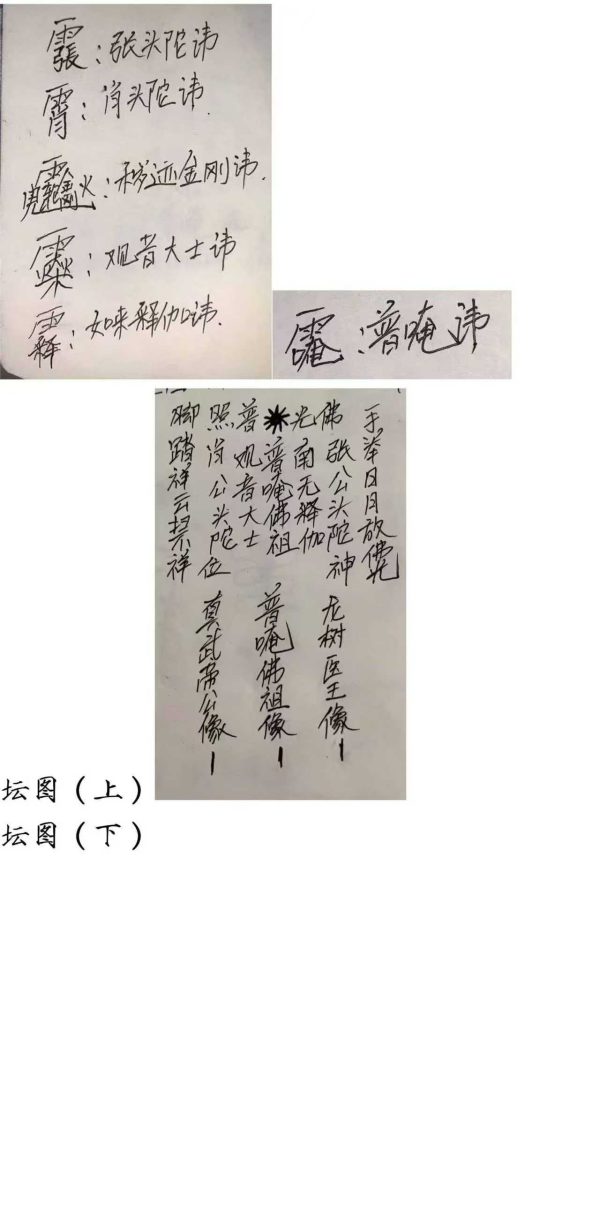 ：张头陀讳
霄：肖头陀讳.
：秽迹金刚讳.
：观音大士讳
：如来释伽讳.
：普唵讳
手举日月放佛光
佛张公头陀神
光南无释伽
普唵佛祖
普观音大士
照肖公头陀位
脚踏祥云祥
龙树医王像
普唵佛祖像
真武帝公像
坛图（上）
坛图（下）